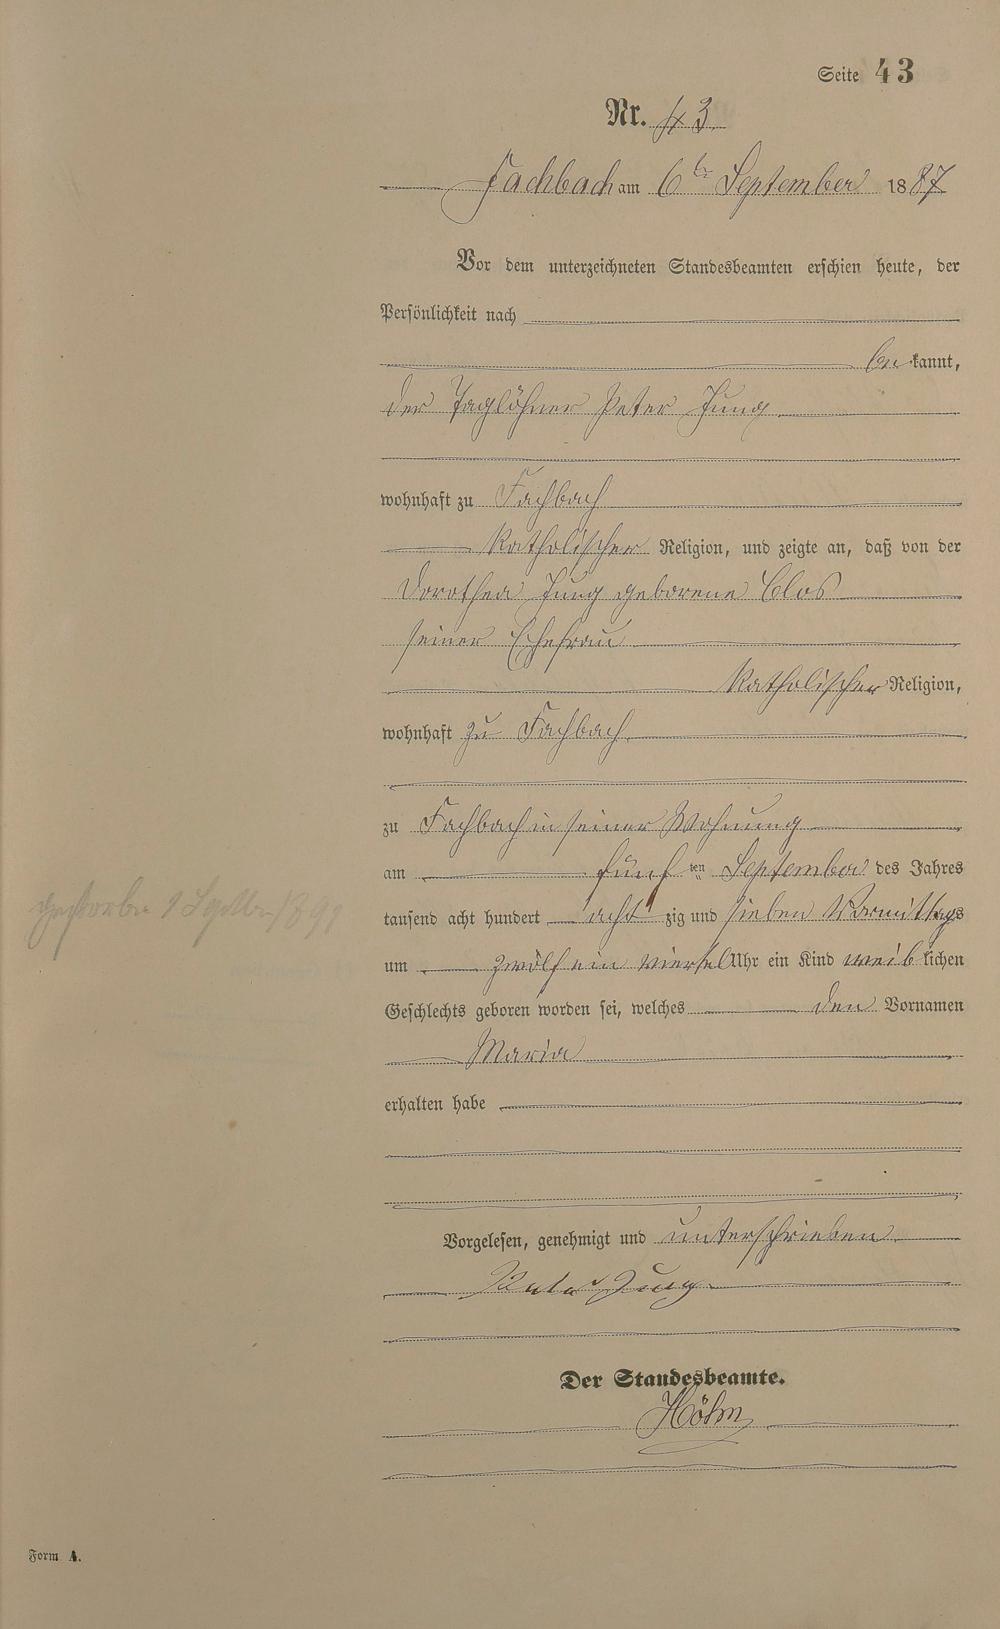 Seite 43
Nr. 43
Fachbach am 6ten September 1887
Vor dem unterzeichneten Standesbeamten erschien heute, der
Persönlichkeit nach
be kannt,
der Taglöhner Peter Jung
wohnhaft zu Fachbach
katholischer Religion, und zeigte an, daß von der
Dorothea Jung geborene Clos
seiner Ehefrau
katholischer Religion,
wohnhaft zu Fachbach
zu Fachbach in seiner Wohnung
am fünf ten September des Jahres
tausend acht hundert acht zig und sieben Vormittags
um zwölf ein viertel Uhr ein Kind weib lichen
Geschlechts geboren worden sei, welches den Vornamen
Maria
erhalten habe
Vorgelesen, genehmigt und unterschrieben
Peter Jung
Der Standesbeamte.
Höhn
gestorben 1
Form A.